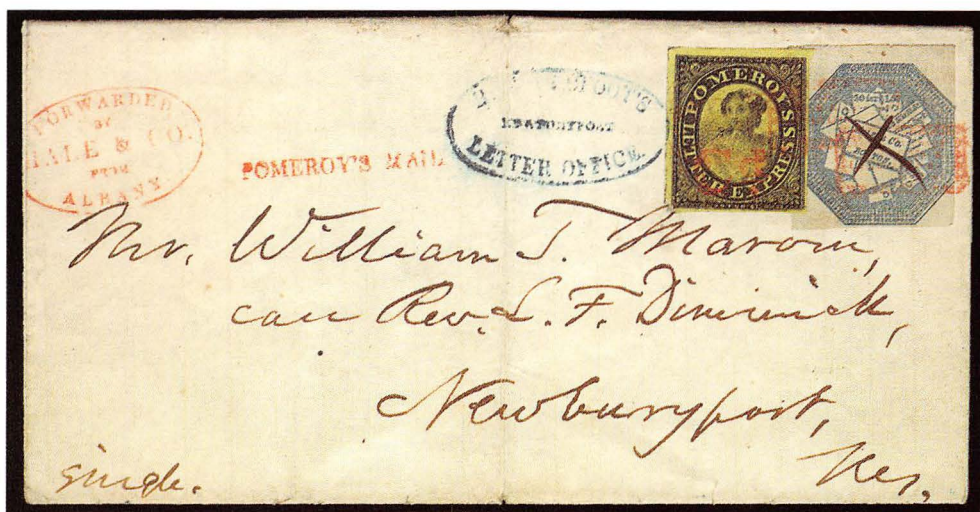 FORWARDED
BY
HALE & CO.
FROM
ALBANY
POMEROY'S MAIL
LETTER OFFICE
POMEROY'S
LETTER EXPRESS
Mr. William T. Marvin,
care Rev. L. F. Dimmick,
Newburyport,
single.